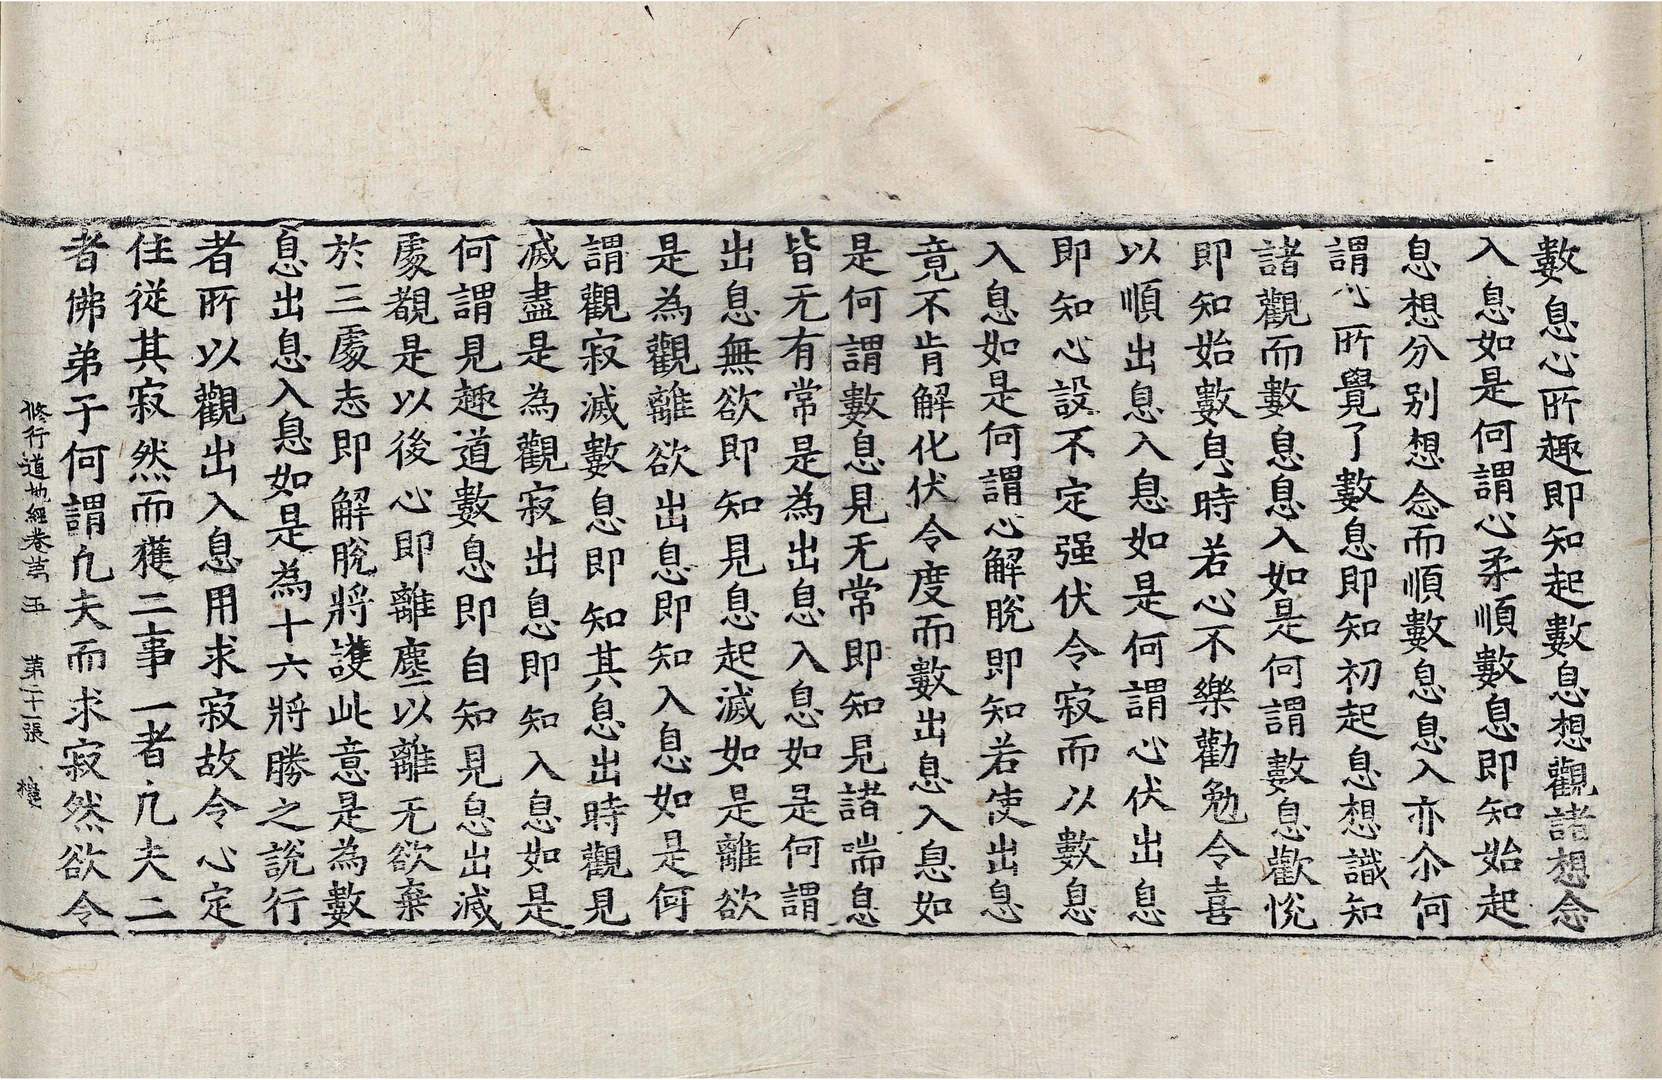 數息心所趣即知起數息想觀諸想念
入息如是何謂心柔順數息即知始起
息想分別想念而順數息息入亦尒何
謂心所覺了數息即知初起息想識知
諸觀而數息息入如是何謂數息歡悅
即知始數息時若心不樂勸勉令喜
以順出息入息如是何謂心伏出息
即知心設不定强伏令寂而以數息
入息如是何謂心解脫即知若使出息
竟不肯解化伏令度而數出息入息如
是何謂數息見无常即知見諸喘息
皆无有常是為出息入息如是何謂
出息無欲即知見息起滅如是離欲
是為觀離欲出息即知入息如是何
謂觀寂滅數息即知其息出時觀見
滅盡是為觀寂出息即知入息如是
何謂見趣道數息即自知見息出滅
處覩是以後心即離塵以離无欲棄
於三處志即解脫將護此意是為數
息出息入息如是為十六將勝之說行
者所以觀出入息用求寂故令心定
住從其寂然而獲二事一者凡夫二
者佛弟子何謂凡夫而求寂然欲令
修行道地經卷苐五 苐二十一張